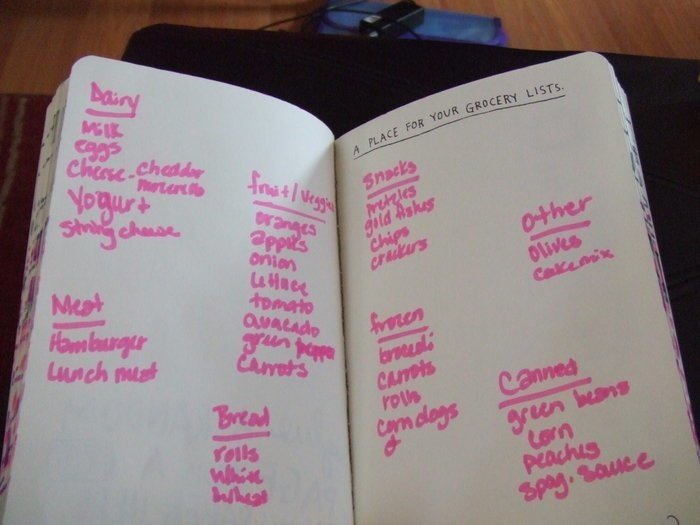 Dairy
Milk
eggs
Cheese - cheddar
Yogurt
String cheese
Meat
Hamburger
Lunch meat
fruit/veggies
oranges
apples
onion
lettuce
tomato
avacado
green pepper
Carrots
Bread
rolls
White
Wheat
A PLACE FOR YOUR GROCERY LISTS.
Snacks
pretzles
gold fishes
chips
crackers
frozen
broccoli
carrots
rolls
corn dogs
Other
Olives
cake mix
Canned
green beans
corn
peaches
spag. sauce